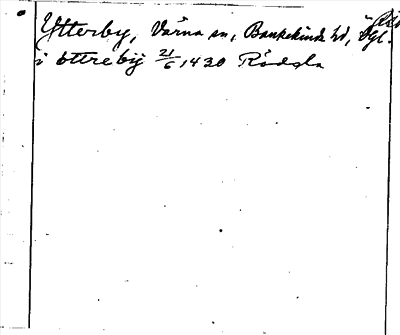 Ytterby, Vårna sn, Bankekinds hd, Ögl.
i ottreby 21/6 1430 Rådgla